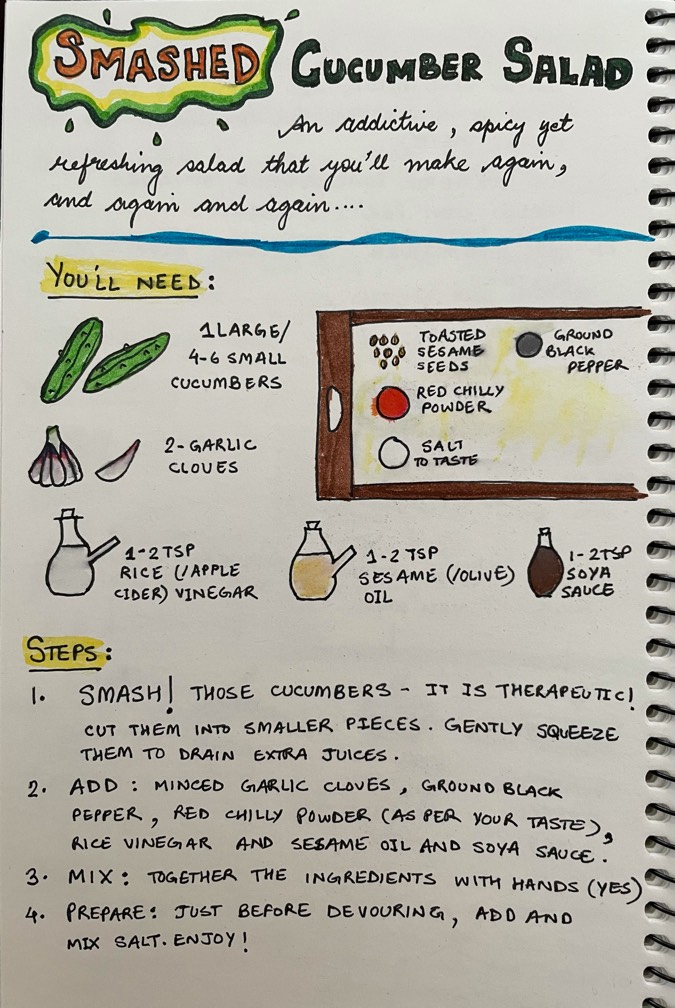 SMASHED CUCUMBER SALAD
An addictive, spicy yet
refreshing salad that you'll make again,
and again and again....
YOU'LL NEED:
1 LARGE/
4-6 SMALL
CUCUMBERS
TOASTED
SESAME
SEEDS
GROUND
BLACK
PEPPER
RED CHILLY
POWDER
2-GARLIC
CLOVES
SALT
TO TASTE
1-2 TSP
RICE (/APPLE
CIDER) VINEGAR
1-2 TSP
SESAME (/OLIVE)
OIL
1-2TSP
SOYA
SAUCE
STEPS:
1. SMASH! THOSE CUCUMBERS - IT IS THERAPEUTIC!
CUT THEM INTO SMALLER PIECES. GENTLY SQUEEZE
THEM TO DRAIN EXTRA JUICES.
2. ADD: MINCED GARLIC CLOVES, GROUND BLACK
PEPPER, RED CHILLY POWDER (AS PER YOUR TASTE),
RICE VINEGAR AND SESAME OIL AND SOYA SAUCE.
3. MIX: TOGETHER THE INGREDIENTS WITH HANDS (YES)
4. PREPARE: JUST BEFORE DEVOURING, ADD AND
MIX SALT. ENJOY!